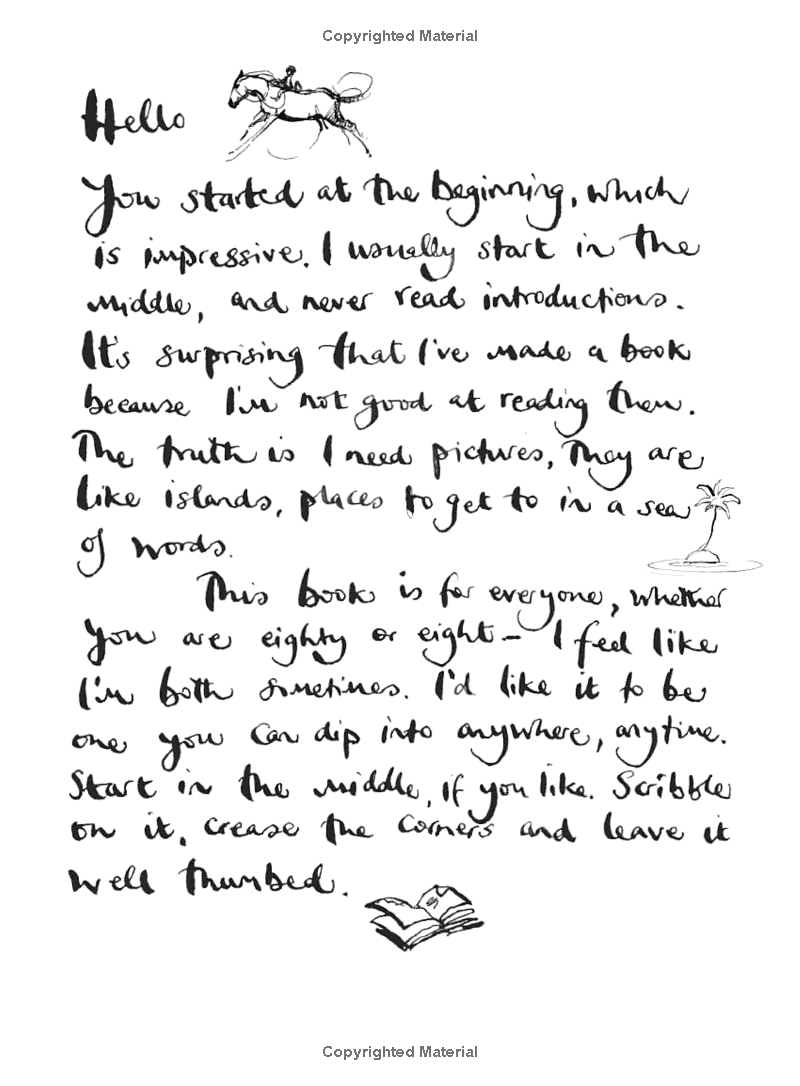 Copyrighted Material
Hello
You started at the beginning, which
is impressive. I usually start in the
middle, and never read introductions.
It's surprising that I've made a book
because I'm not good at reading them.
The truth is I need pictures, They are
like islands, places to get to in a sea
of words.
This book is for everyone, whether
you are eighty or eight – I feel like
I'm both sometimes. I'd like it to be
one you can dip into anywhere, anytime.
Start in the middle, if you like. Scribble
on it, crease the corners and leave it
well thumbed.
Copyrighted Material